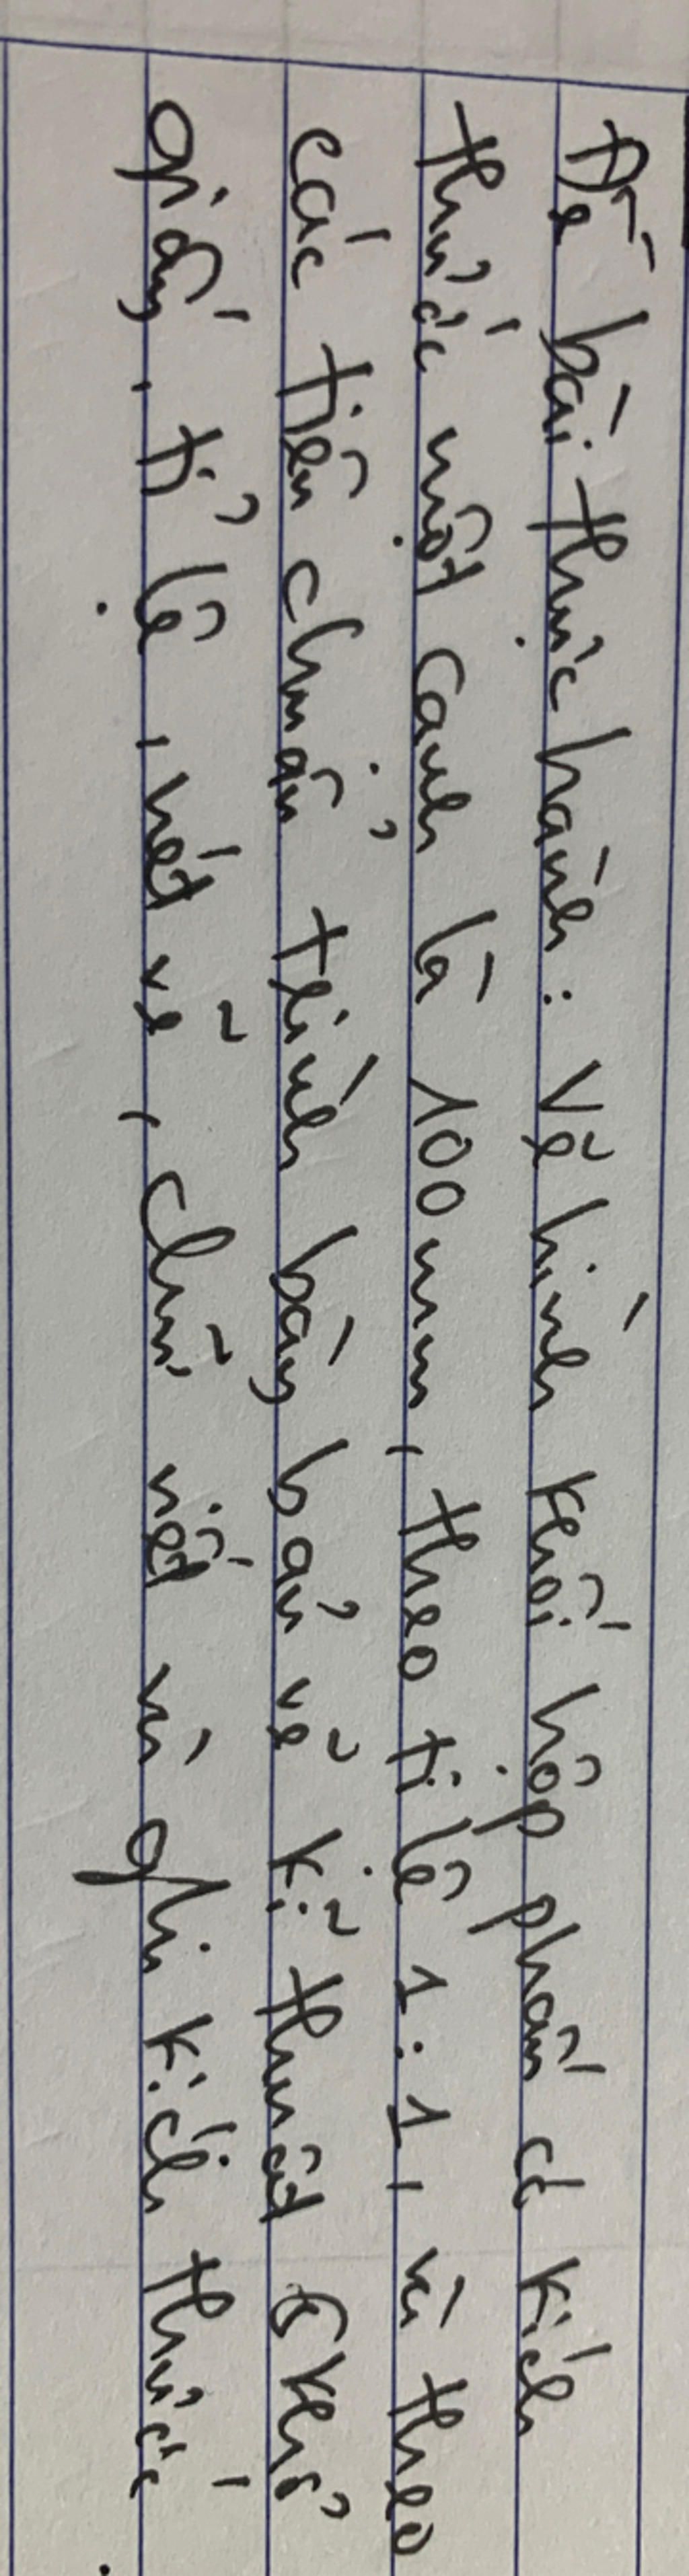 Đề bài thực hành: Vẽ hình khối hộp phấn có kích
thước một cạnh là 100mm, theo tỉ lệ 1:1, và theo
các tiêu chuẩn trình bày bản vẽ kĩ thuật ở khổ
giấy, tỉ lệ, nét vẽ, chữ viết và ghi kích thước.